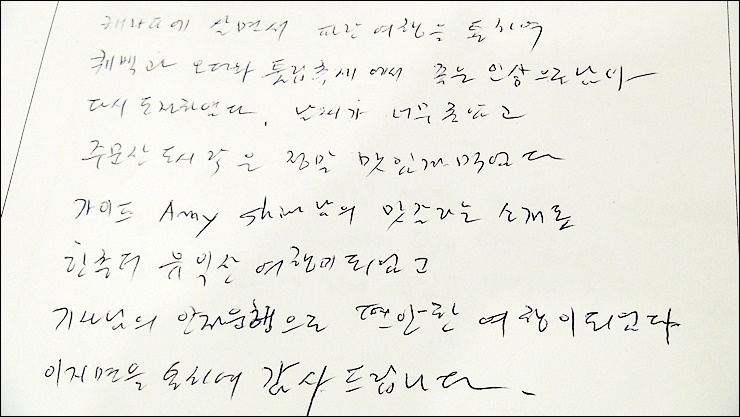 캐나다에 살면서 파란여행을 통하여
퀘벡과 오타와 튤립축제에서 좋은 인상으로 남아
다시 도착하였다. 날씨가 너무 좋았고
주문산 도시락은 정말 맛있게 먹었다
가이드 Amy Shin님의 맛갈라는 소개로
한층더 유익산 여행이 되었고
기사님의 안전운행으로 편안한 여행이 되었다
이지면을 통하여 감사드립니다.